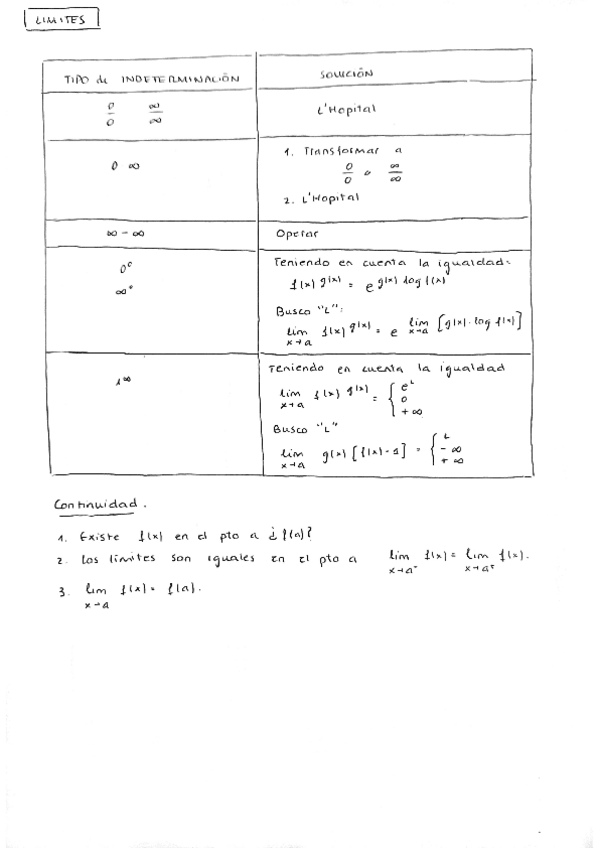 LIMITES
TIPO de INDETERMINACIÓN
SOLUCIÓN
0/0 ∞/∞
L'Hopital
0 ∞
1. Transformar a
0/0 o ∞/∞
2. L'Hopital
∞ - ∞
Operar
0⁰
∞⁰
Teniendo en cuenta la igualdad:
f(x)^g(x) = e^(g(x) log f(x))
Busco "L":
lim x→a f(x)^g(x) = e^(lim x→a [g(x) · log f(x)])
1^∞
Teniendo en cuenta la igualdad
lim x→a f(x)^g(x) = { e^L
0
+∞
Busco "L"
lim x→a g(x) [f(x) - 1] = { L
-∞
+∞
Continuidad.
1. Existe f(x) en el pto a ¿f(a)?
2. Los límites son iguales en el pto a lim x→a⁻ f(x) = lim x→a⁺ f(x).
3. lim x→a f(x) = f(a).